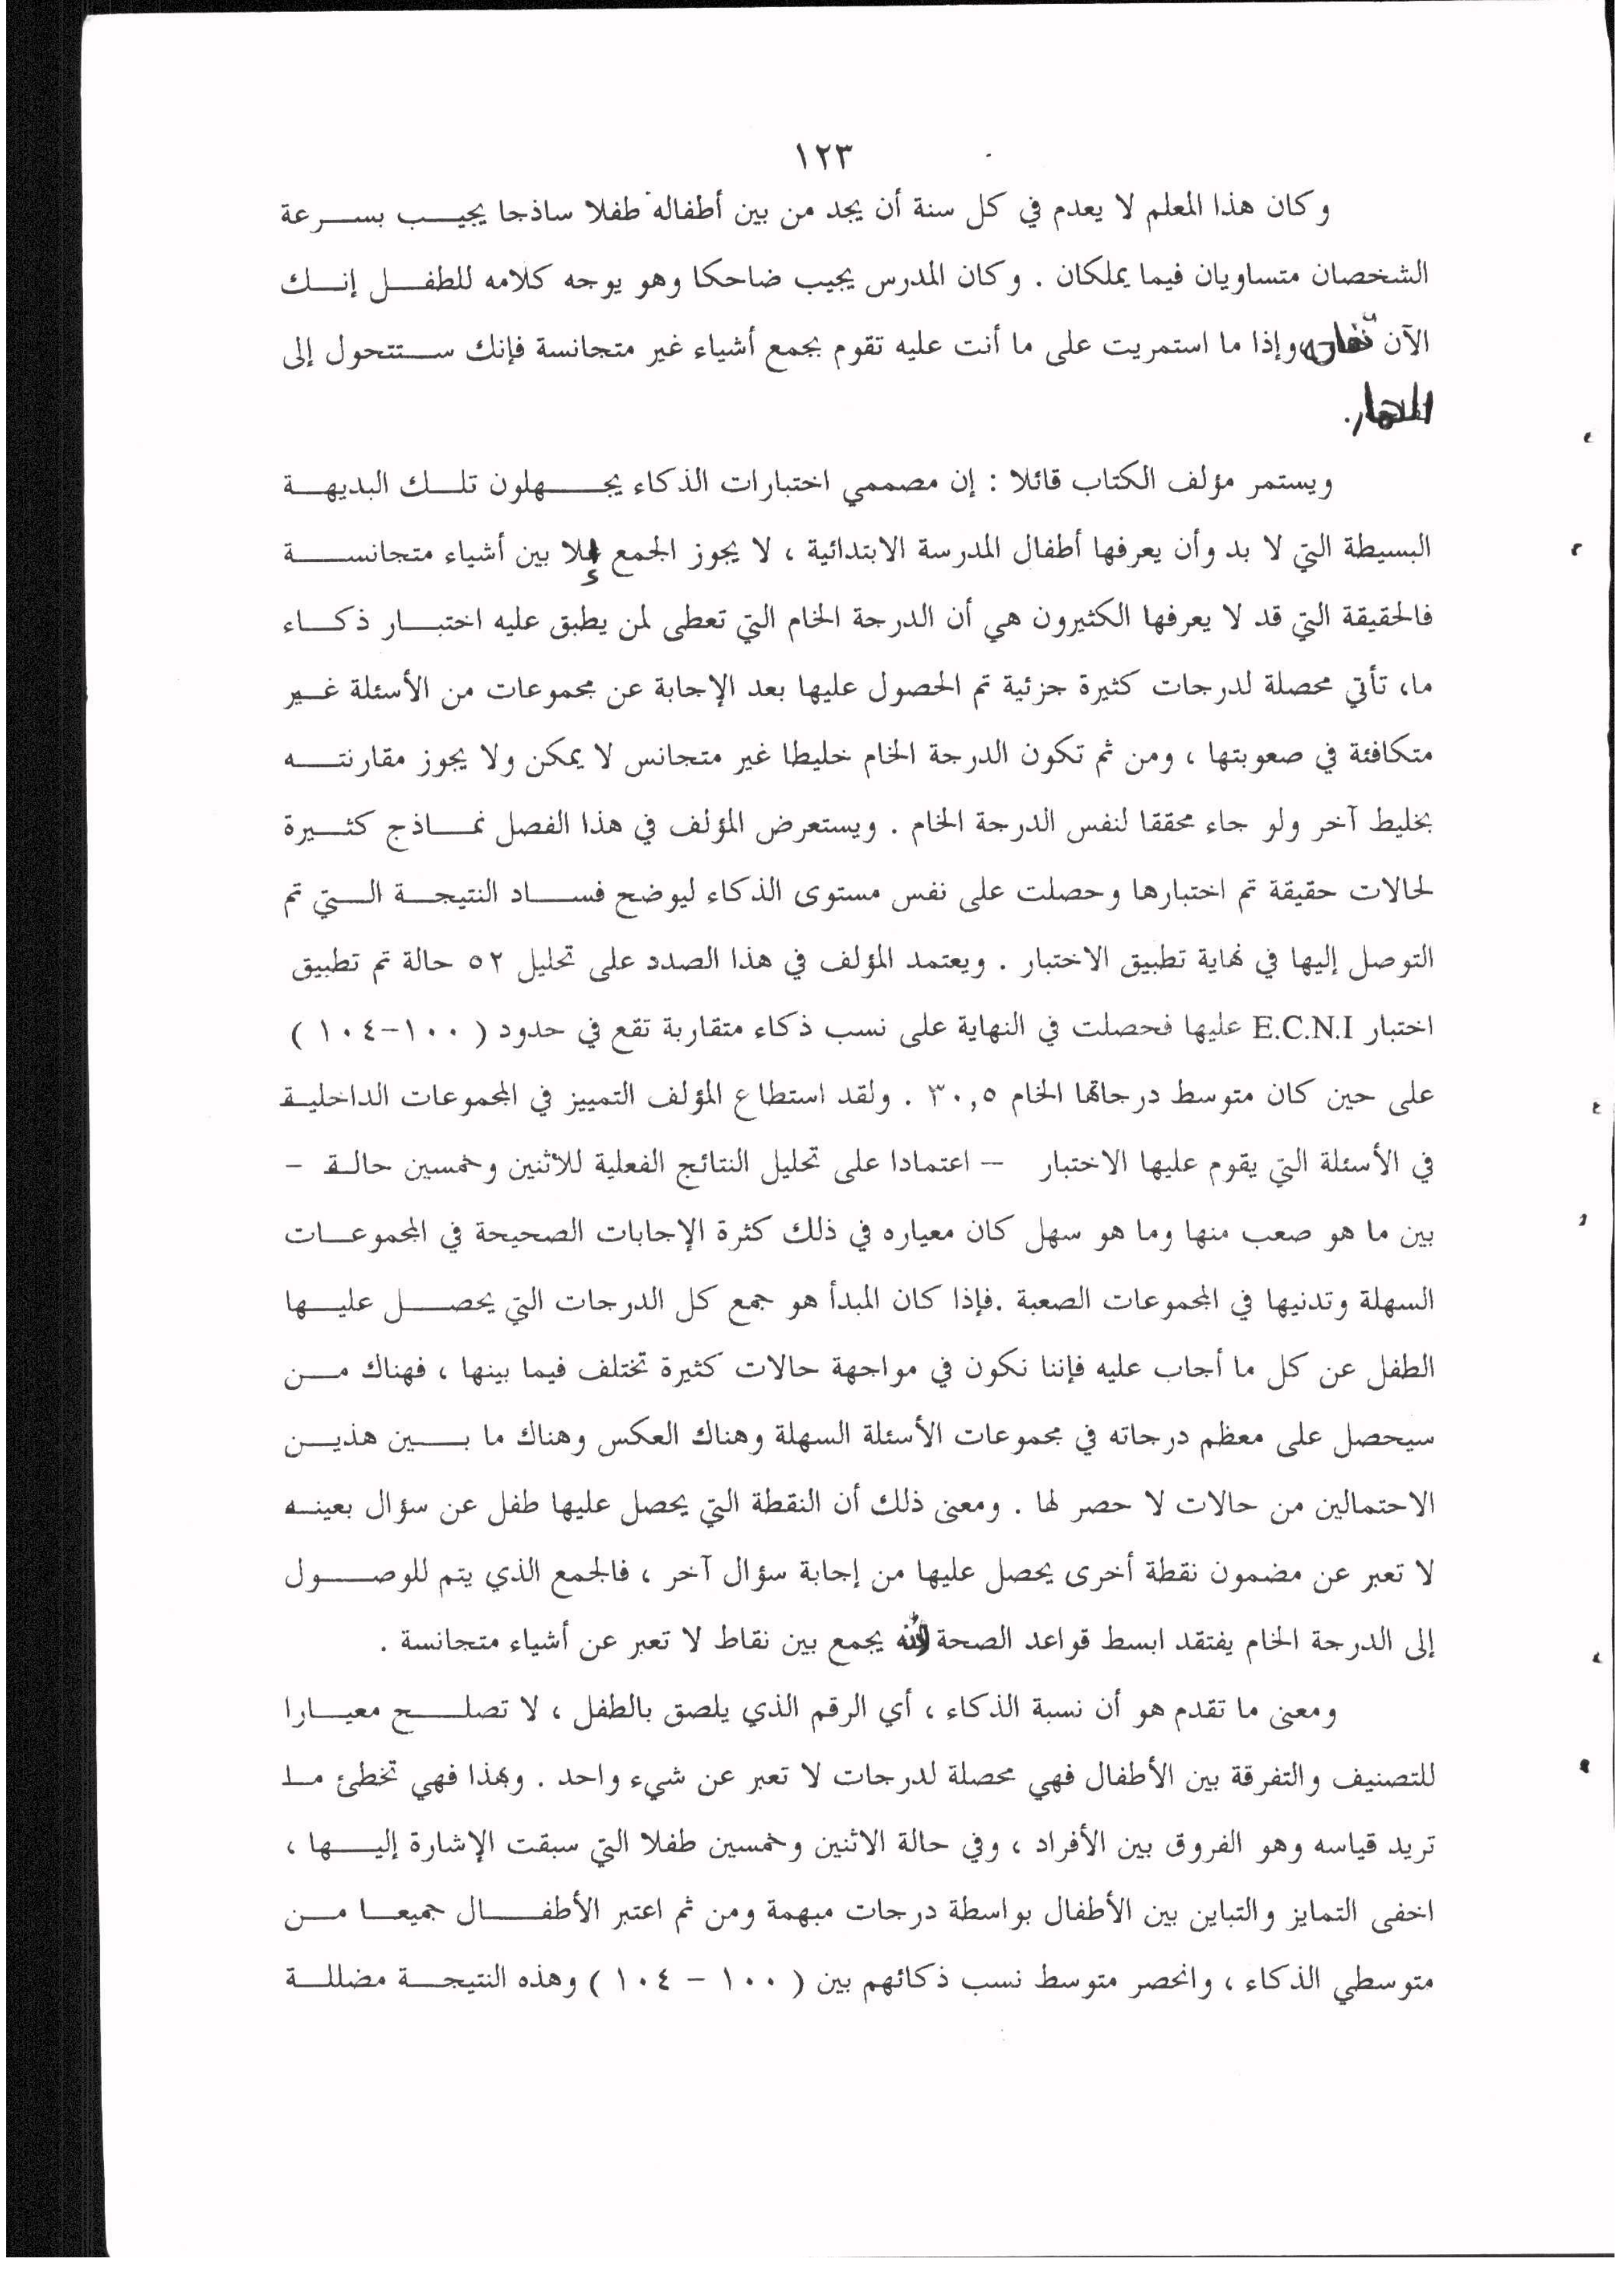 ١٢٣
وكان هذا المعلم لا يعدم في كل سنة أن يجد من بين أطفاله طفلا ساذجا يجيب بسرعة
الشخصان متساويان فيما يملكان . وكان المدرس يجيب ضاحكا وهو يوجه كلامه للطفل إنك
الآن وإذا ما استمريت على ما أنت عليه تقوم بجمع أشياء غير متجانسة فإنك ستتحول إلى
ويستمر مؤلف الكتاب قائلا : إن مصممي اختبارات الذكاء يجهلون تلك البديهة
البسيطة التي لا بد وأن يعرفها أطفال المدرسة الابتدائية ، لا يجوز الجمع إلا بين أشياء متجانسة
فالحقيقة التي قد لا يعرفها الكثيرون هي أن الدرجة الخام التي تعطى لمن يطبق عليه اختبار ذكاء
ما، تأتي محصلة لدرجات كثيرة جزئية تم الحصول عليها بعد الإجابة عن مجموعات من الأسئلة غير
متكافئة في صعوبتها ، ومن ثم تكون الدرجة الخام خليطا غير متجانس لا يمكن ولا يجوز مقارنته
بخليط آخر ولو جاء محققا لنفس الدرجة الخام . ويستعرض المؤلف في هذا الفصل نماذج كثيرة
لحالات حقيقة تم اختبارها وحصلت على نفس مستوى الذكاء ليوضح فساد النتيجة التي تم
التوصل إليها في نهاية تطبيق الاختبار . ويعتمد المؤلف في هذا الصدد على تحليل ٥٢ حالة تم تطبيق
اختبار E.C.N.I عليها فحصلت في النهاية على نسب ذكاء متقاربة تقع في حدود ( ١٠٠-١٠٤ )
على حين كان متوسط درجاتها الخام ٣٠,٥ . ولقد استطاع المؤلف التمييز في المجموعات الداخلية
في الأسئلة التي يقوم عليها الاختبار – اعتمادا على تحليل النتائج الفعلية للاثنين وخمسين حالة -
بين ما هو صعب منها وما هو سهل كان معياره في ذلك كثرة الإجابات الصحيحة في المجموعات
السهلة وتدنيها في المجموعات الصعبة .فإذا كان المبدأ هو جمع كل الدرجات التي يحصل عليها
الطفل عن كل ما أجاب عليه فإننا نكون في مواجهة حالات كثيرة تختلف فيما بينها ، فهناك من
سيحصل على معظم درجاته في مجموعات الأسئلة السهلة وهناك العكس وهناك ما بين هذين
الاحتمالين من حالات لا حصر لها . ومعنى ذلك أن النقطة التي يحصل عليها طفل عن سؤال بعينه
لا تعبر عن مضمون نقطة أخرى يحصل عليها من إجابة سؤال آخر ، فالجمع الذي يتم للوصول
إلى الدرجة الخام يفتقد ابسط قواعد الصحة لأنه يجمع بين نقاط لا تعبر عن أشياء متجانسة .
ومعنى ما تقدم هو أن نسبة الذكاء ، أي الرقم الذي يلصق بالطفل ، لا تصلح معيارا
للتصنيف والتفرقة بين الأطفال فهي محصلة لدرجات لا تعبر عن شيء واحد . وبهذا فهي تخطئ ما
تريد قياسه وهو الفروق بين الأفراد ، وفي حالة الاثنين وخمسين طفلا التي سبقت الإشارة إليها ،
اخفى التمايز والتباين بين الأطفال بواسطة درجات مبهمة ومن ثم اعتبر الأطفال جميعا من
متوسطي الذكاء ، وانحصر متوسط نسب ذكائهم بين ( ١٠٠ - ١٠٤ ) وهذه النتيجة مضللة